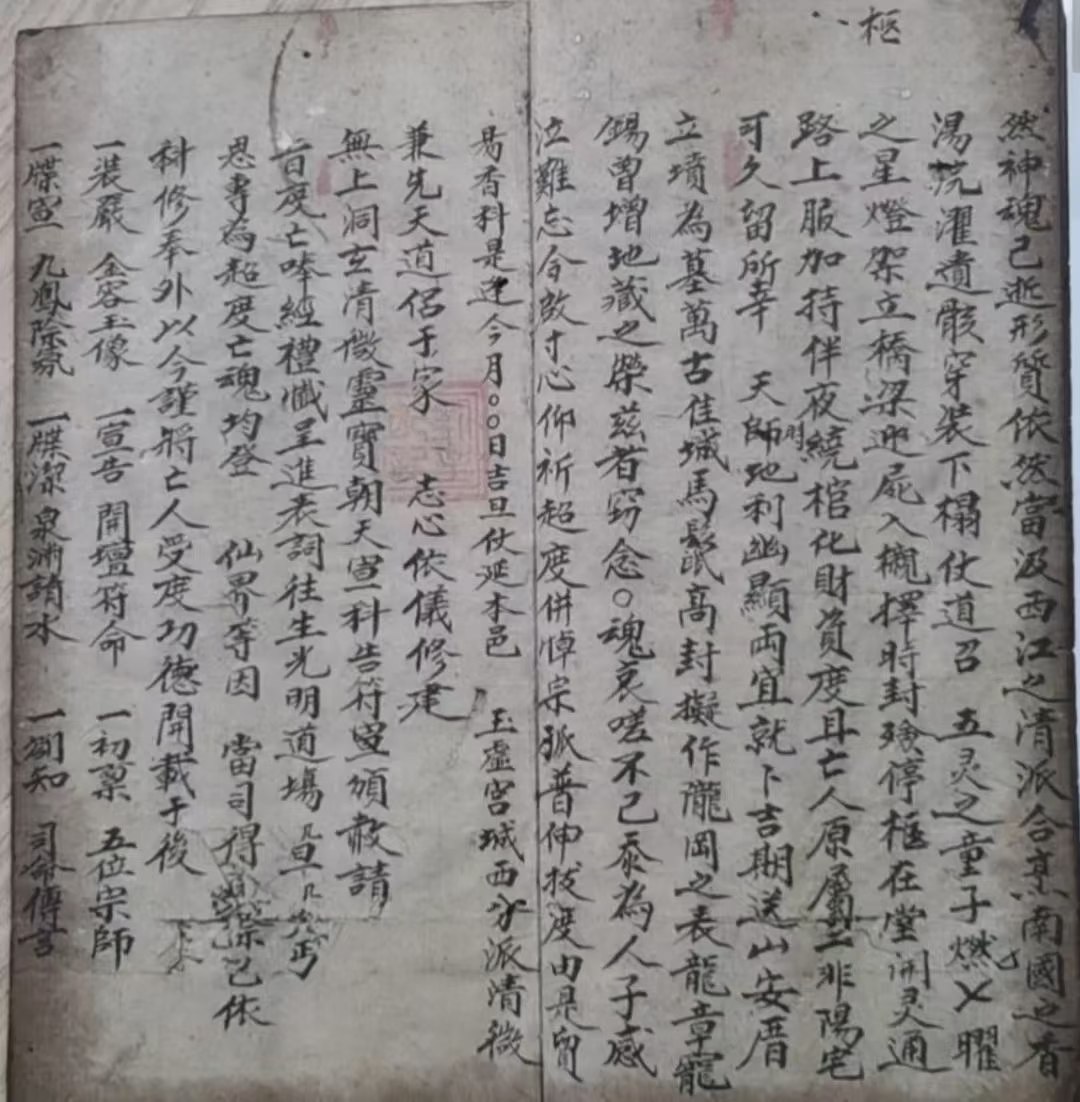 柩
然神魂已逝形質依然當汲西江之清派合烹南國之香
湯浣濯遺骸穿装下榻仗道召 五灵之童子燃乂曜
之星燈架立橋梁迎屍入櫬擇時封殮停柩在堂開灵通
路上服加持伴夜繞棺化財資度且亡人原属土非陽宅
可久留所幸 天師地利幽顯両宜就卜吉期送山安厝
立墳為墓萬古佳城馬鬣高封擬作隴岡之表龍章寵
錫曽增地藏之榮兹者窃念○魂哀嗟不已忝為人子感
泣難忘今啟寸心仰祈超度併悼宗孤普伸拔度由是貿
易香科是迎今月○○日吉旦仗延本邑 玉虚宮城西分派清微
兼先天道侣于家 志心依儀修建
無上洞玄清微靈寶朝天宣科告符宣頒赦請
旨度亡哞經禮懺呈進表詞往生光明道場几旦几
恩専為超度亡魂均登 仙界等因 當司得 已依
科修奉外以今謹將亡人受度功德開載于後
一装嚴 金容玉像 一宣告 開壇符命 一初禀 五位宗師
一牒宣 九鳳除氛 一牒潔 泉渊請水 一劄知 司命傳言